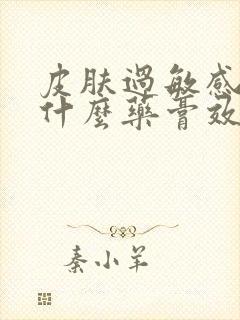 皮肤過敏感
什麼藥膏效
秦小羊